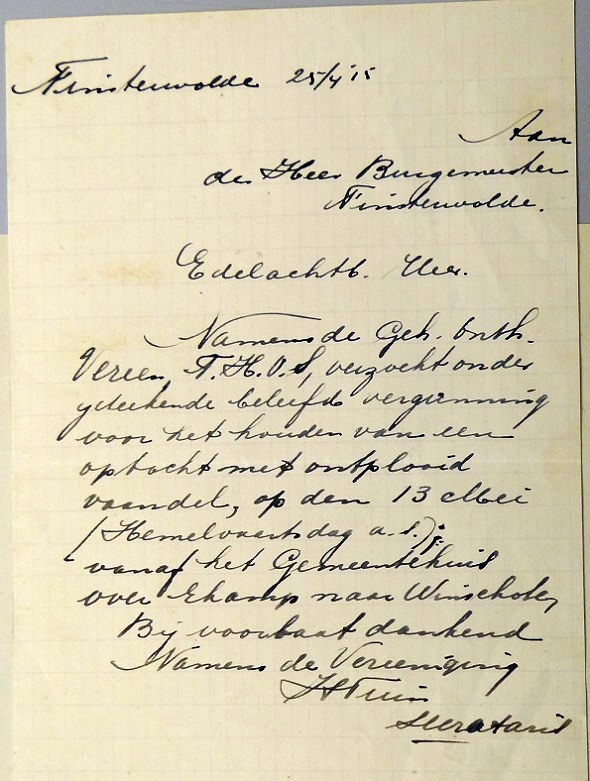 Finsterwolde 25/4 '15
Aan
den Heer Burgemeester
Finsterwolde.
Edelachtb. Heer.
Namens de Geh. Onth.
Vereen, T.H.O.S, verzocht onder
geteekende beleefd vergunning
voor het houden van een
optocht met ontplooid
vaandel, op den 13 Mei
(Hemelvaartsdag a.s.);
vanaf het Gemeentehuis
over Ekamp naar Winschoten,
Bij voorbaat dankend
Namens de Vereeniging
H Tuin
Secretaris